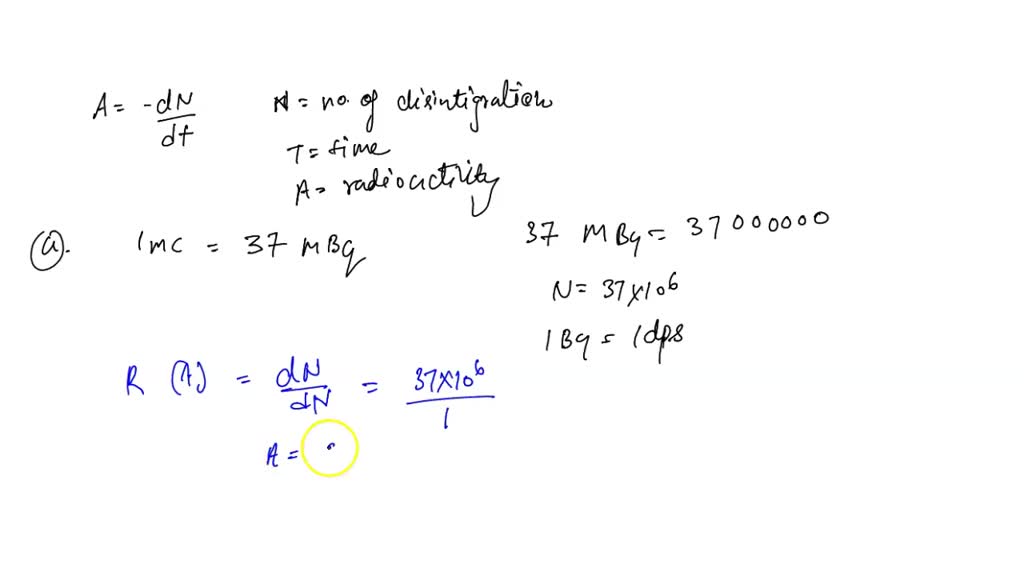 A = -dN/dt
N = no. of disintigration
T = time
A = radioactivity
(a). 1mC = 37 MBq
37 MBq = 37000000
N = 37×10^6
1Bq = 1dps
R (A) = dN/dN = 37×10^6/1
A =